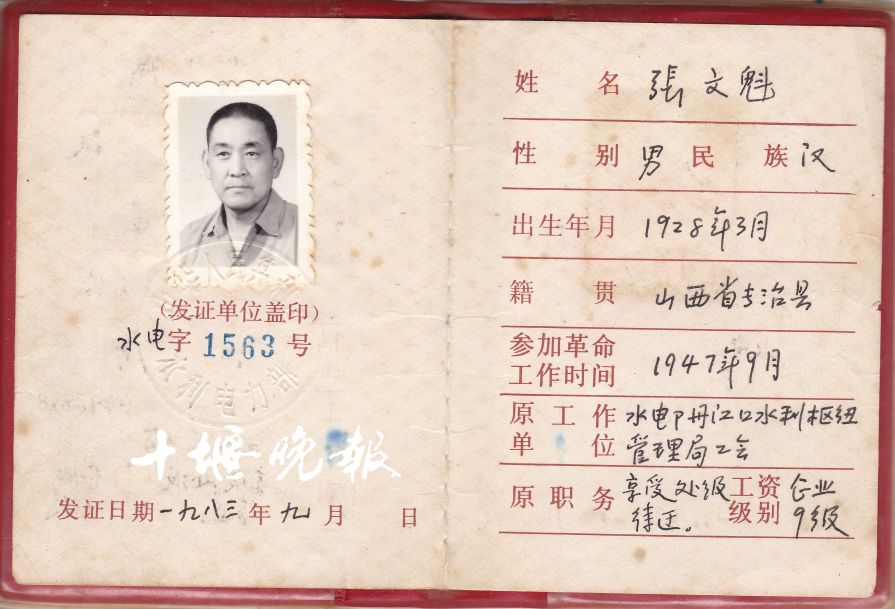 (发证单位盖印)
水电字 1563 号
水利电力部
十堰晚报
发证日期 一九八三 年 九 月 日
姓名 張文魁
性别 男 民族 汉
出生年月 1928年3月
籍贯 山西省长治县
参加革命
工作时间 1947年9月
原工作 水电卩丹江口水利枢纽
单位 管理局工会
原职务 享受处级 工资 企业
待迂。 级别 9级